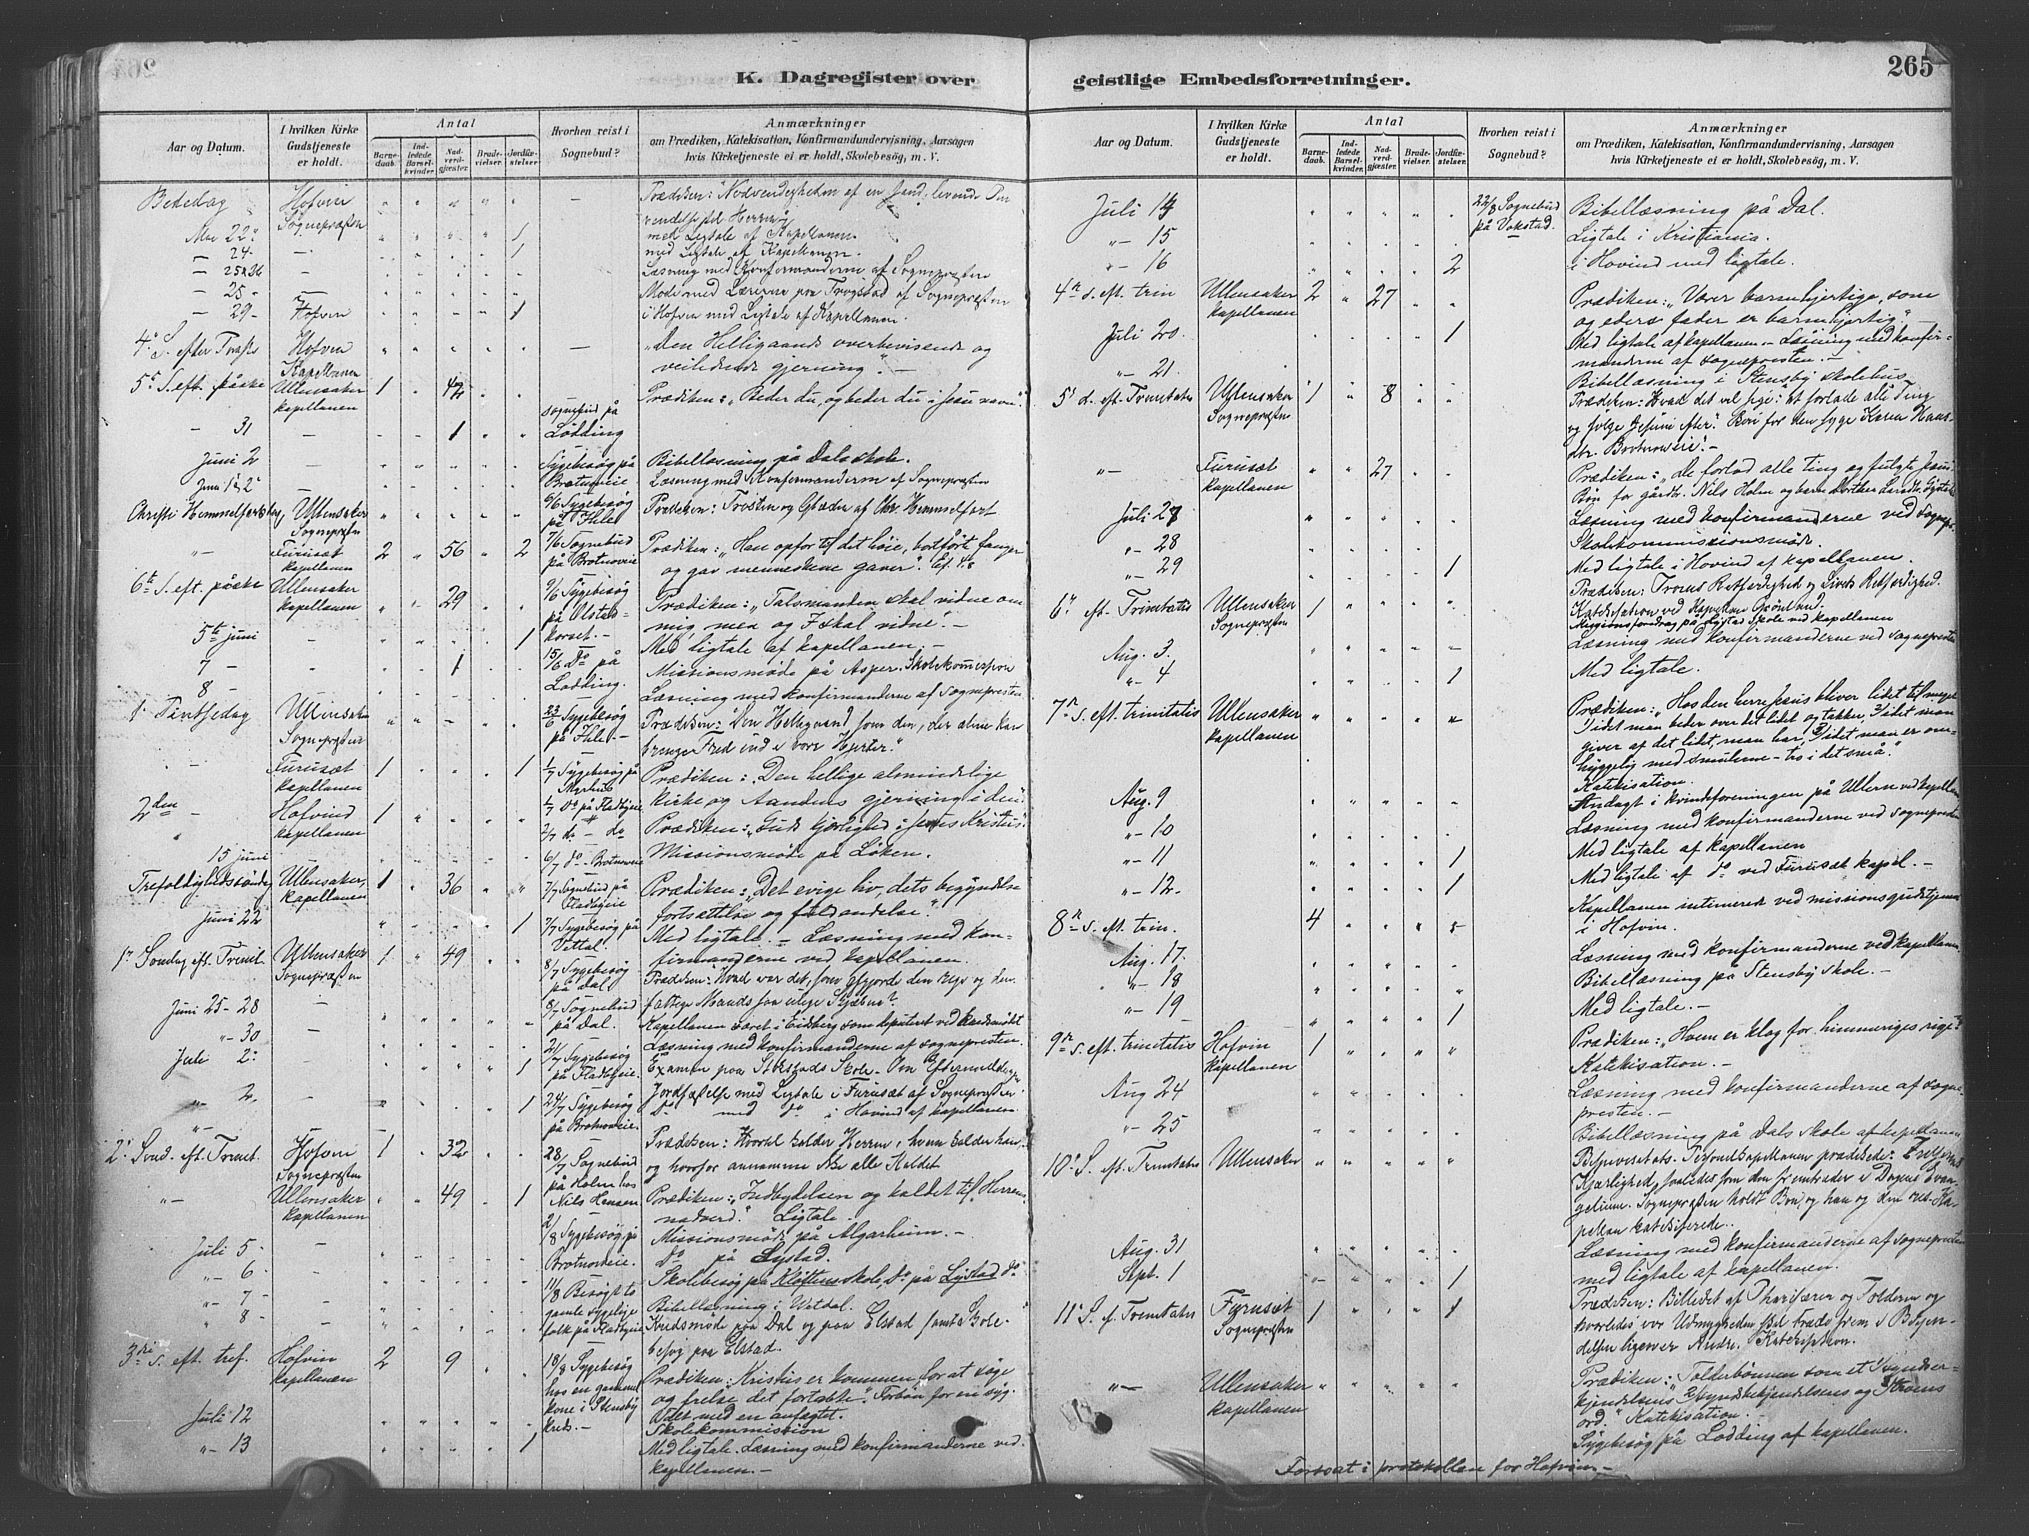 K. Dagregister over
Aar og Datum.
I hvilken Kirke Gudstjeneste er holdt.
Antal
Barnedaab.
Indledede Barselkvinder.
Nadverdgjæster.
Brudevielser.
Jordfæstelser.
Hvorhen reist i Sognebud?
Anmærkninger
om Prædiken, Katekisation, Konfirmandundervisning, Aarsagen
hvis Kirketjeneste ei er holdt, Skolebesög, m. V.
Bededag Hofvin Prædiken: "Nødvendigheden af en sand, levende
Sognepræsten vendelse til Herren"
Mai 22 1 med Ligtale af Kapellanen.
24 1 med Ligtale af Kapellanen.
25 & 26 Læsning med Konfirmanderne af Sognepræsten
25 Møde med Lærerne paa Trøgstad af Sognepræsten
29 Hofvin 1 i Hofvin med Ligtale af Kapellanen.
4. S. efter Hofvin "Den Helligaands overbevisende og
Kapellanen veiledende gjerning."
5te S. eft. påske Ullensaker 1 42 Prædiken: "Beder du, og beder du i Jesu navn".
kapellanen
31 1 Sognebud på Lødding
Juni 2 Sygebesøg på Brotnoveie Bibellæsning på Dals skole.
Juni 1 & 2 Læsning med Konfirmanderne af Sognepræsten
Christi Himmelfartsdag Ullensaker 6/6 Sygebesøg på Prædiken: Trøsten og Glæden af Chr. Himmelfart
Sognepræsten
Furuset 2 56 2 7/6 Sognebud på Brotnoveie Prædiken: "Han opfor til det høie, bortførte fanger
kapellanen og gav menneskene gaver". Ef. 4.8
6te S. eft. påske Ullensaker 29 9/6 Sygebesøg på Prædiken: "Talsmanden skal vidne om
kapellanen mig, men og I skal vidne".
5te juni 1 Med ligtale af kapellanen.
7 1 15/6 Do på Lødding. Missionsmøde på Asper. Skolekommission
8 Læsning med konfirmanderne af Sognepresten
1. Pintsedag Ullensaker Sygebesøg på Prædiken: Den Helligaand som den, der alene kan
Sognepræsten bringe Fred ind i vore Hjerter."
Furuset 1 1 1/7 Sygebesøg på Prædiken: "Den hellige almindelige
kapellanen kirke og Aandens gjerning i den"
2den Hofvind 1 Prædiken: "Guds kjærlighed i Jesus Kristus".
kapellanen
15 juni 6/7 do Brotnoveie Missionsmöde på Løken.
Trefoldighedssöndag Ullensaker 1 36 7/7 Sognebud på Fladbyeie Prædiken: "Det evige liv, dets begyndelse
kapellanen fortsættelse og fuldendelse".
Juni 22 1 7/7 Sygebesøg på Med ligtale. Læsning med konfirmanderne ved kapellanen.
1. Søndag eft. Trinit. Ullensaker 1 49 8/7 Sygebesøg på Dal Prædiken: Hvad var det, som gjorde den rige og den
Sognepræsten fattige Mands saa ulige Skjæbne?
Juni 25-28 18/7 Sognebud på Dal. Kapellanen været i Eidsberg som deputeret ved kredsmödet
30 Læsning med konfirmanderne af sognepresten.
Juli 2 1 21/7 Sygebesøg på Fladbyeie. Examen paa Skole.
2 1 24/7 Sygebesøg på Brotnoveie. Jordfæstelse med Ligtale i Furuset af Sognepræsten
do med do i Hovind af kapellanen
2. Sønd. eft. Trinit. Hofvin 1 32 28/7 Sognebud på Holm hos Prædiken: Hvortil kalder Herren, hvem kalder han,
Sognepræsten og hvorfor annamme ikke alle Kaldet
Ullensaker 49 1 Nils Hansen Prædiken: "Indbydelsen og kaldet til Herrens
kapellanen nadverd." Ligtale.
Juli 5 2/8 Sygebesøg på Brotnoveie. Missionsmöde på Algarheim.
6 do på Lystad
7 11/8 Besøgt to gamle sygelige folk på Fladbyeie Skolebesøg på Kløftens skole, do på Lystad do
8 Bibellæsning i
Kredsmøde paa Dal og paa Elstad samt Skole-
besøg paa Elstad.
3die s. eft. tref. Hofvin 2 9 18/8 Sygebesøg hos en gammel kone i Stensby kreds. Prædiken: Kristus er kommen for at söge
kapellanen og frelse det fortabte. Forbön for en syg.
med en anfægtet.
Juli 12 Skolekommission
13 1 Med ligtale. Læsning med konfirmanderne ved
kapellanen.
geistlige Embedsforretninger.
265
Aar og Datum.
I hvilken Kirke Gudstjeneste er holdt.
Antal
Barnedaab.
Indledede Barselkvinder.
Nadverdgjæster.
Brudevielser.
Jordfæstelser.
Hvorhen reist i Sognebud?
Anmærkninger
om Prædiken, Katekisation, Konfirmandundervisning, Aarsagen
hvis Kirketjeneste ei er holdt, Skolebesög, m. V.
Juli 14 22/8 Sognebud på Vakstad. Bibellæsning på Dal.
15 Ligtale i Kristiania.
16 2 i Hovind med ligtale.
4de s. eft. trin Ullensaker 2 27 Prædiken: "Værer barmhjertige, som
kapellanen og eders fader er barmhjertig."
Juli 20 1 Med ligtale af kapellanen. Læsning med konfir-
manderne af sognepresten.
21 Bibellæsning i Stensby skolehus.
5. S. eft. Trinitatis Ullensaker 1 8 Prædiken: Hvad det vil sige: at forlade alle Ting
Sognepræsten og følge Jesum efter." Bøn for den syge Karen Hans-
dtr. Brotnoveie.
Furuset 27 Prædiken: "De forlod alle ting og fulgte Jesus"
kapellanen Bön for gårdbr. Nils Holm og barn
Juli 27 Læsning med konfirmanderne ved sognepr.
28 Skolekommissionsmöde.
29 1 Med ligtale i Hovind af kapellanen.
6. eft. Trinitatis Ullensaker 1 Prædiken: Troens Retfærdighed og Livets Retfærdighed.
Sognepræsten Katekisation ved Kapellan Grönlund.
Missionsforedrag på Lystad Skole ved kapellanen
Aug. 3. Læsning med konfirmanderne ved sognepresten
4 1 Med ligtale.
7de s. eft. trinitatis Ullensaker Prædiken: "Hos den herre Jesus bliver lidet til meget
kapellanen 1/ idet man beder over det lidet og takker, 2/ idet man
giver af det lidet, man har, 3/ idet man er om-
hyggelig med smulerne - tro i det små."
Katekisation.
Aug. 9 Andagt i kvindeforeningen på Ullern ved kapellanen
10 Læsning med konfirmanderne ved sognepresten
11 1 Med ligtale af kapellanen
12. 1 Med ligtale af do ved Furuset kapel.
8de s. eft. trin. 4 Kapellanen intimerede ved missionsgudstjenesten
i Hofvin.
Aug. 17. Læsning med konfirmanderne ved kapellanen.
18 Bibellæsning på Stensby skole.
19 1 Med ligtale.
9de s. eft. trinitatis Hofvin 1 Prædiken: "Hvem er klog for himmeriges rige?"
kapellanen Katekisation.
Aug 24 Læsning med konfirmanderne af sogne-
presten.
25 Bibellæsning på Dals skole af kapellanen
10. S. eft. Trinitatis Ullensaker Bispevisitats. Personelkapellanen prædikede:
Kjærlighed, saaledes som den fremtræder i Dagens Evan-
gelium. Sognepræsten holdt Bøn, og han og den res. Ka-
pellan katekiserede.
Aug. 31 Læsning med konfirmanderne af sognepresten
Sept. 1 1 med ligtale af kapellanen.
11. S. e. Trinitatis Furuset 1 1 Prædiken: Billedet af Pharisæren og Tolderen og
Sognepræsten hvorledes vor Udmyghed skal træde frem i Bedømmelsen
ligeover Andre. Katekisation.
Ullensaker Prædiken: "Tolderbønnen som et Syndser-
kapellanen kjendelsens, Syndsbekjendelsens og Troens
ord." Katekisation.
Sygebesøg på Lodding af kapellanen.
Fortsat i protokollen for Hofvin.